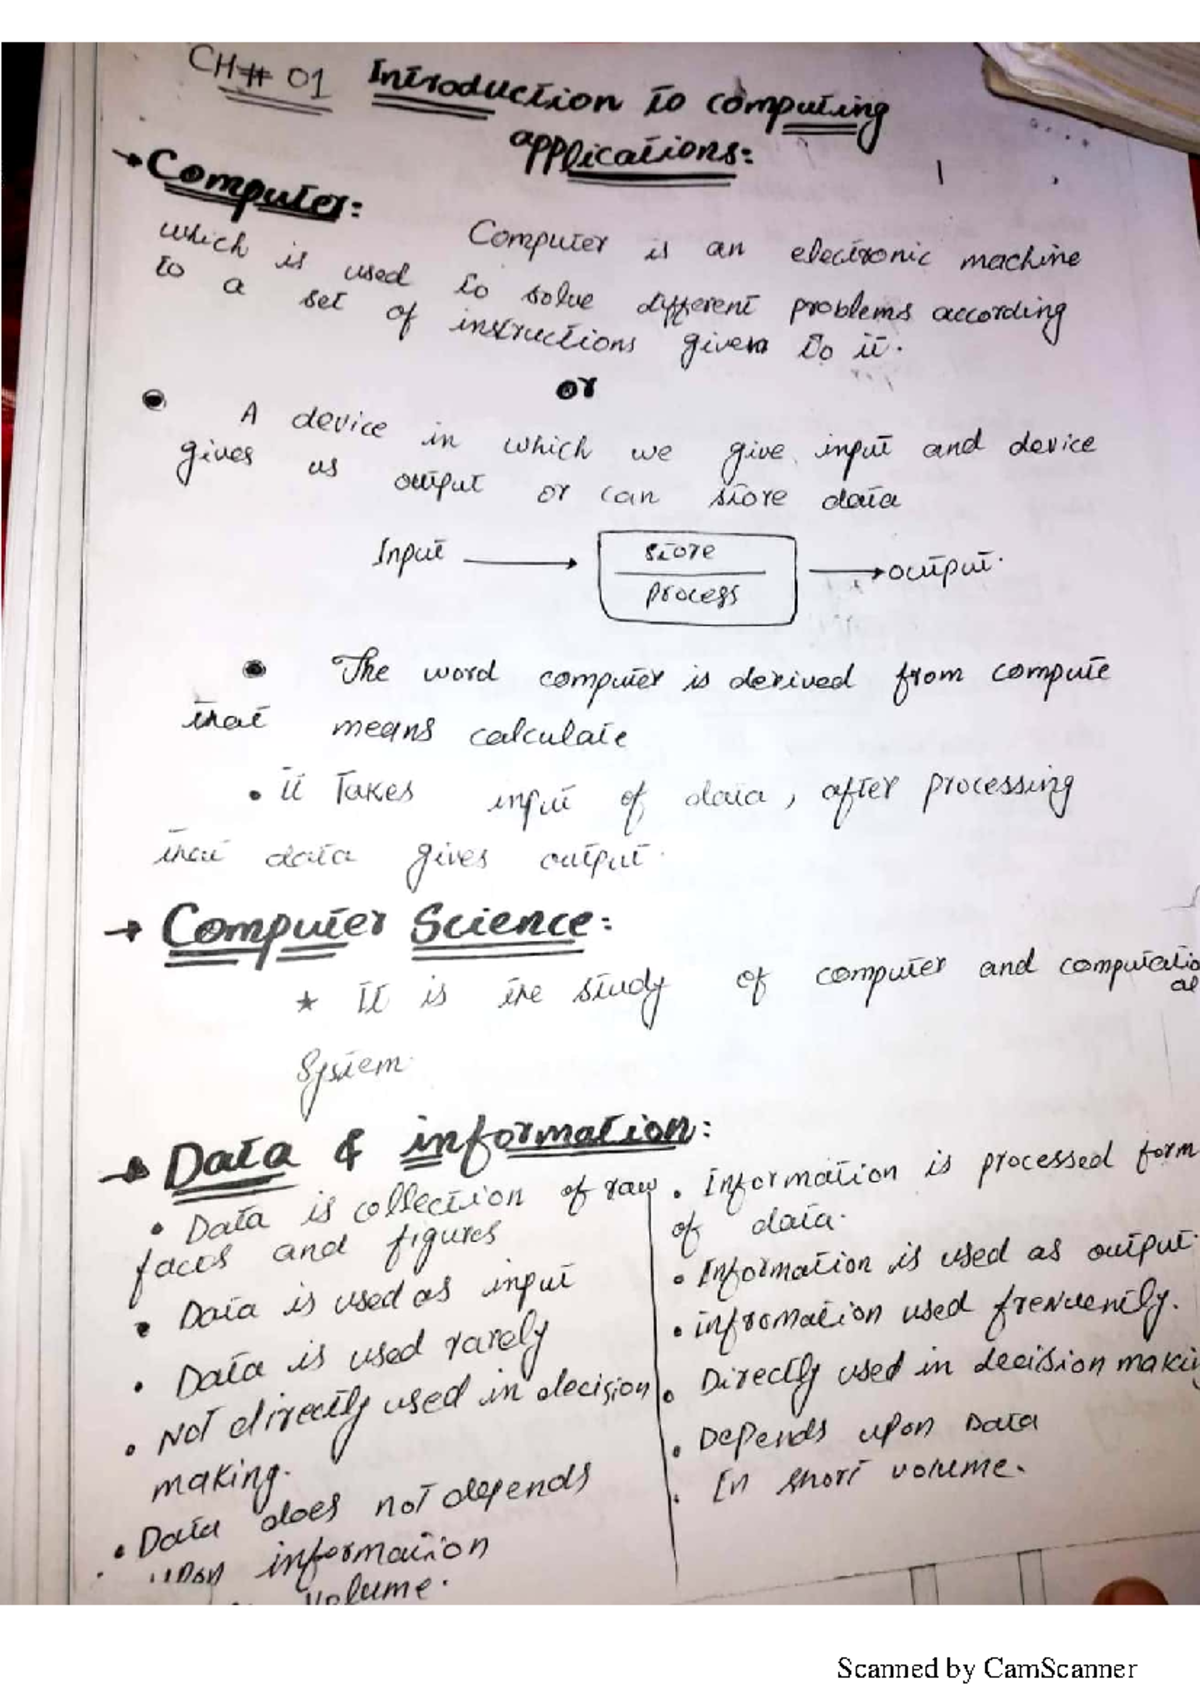 CH# 01 Introduction to computing
applications:
1
→ Computer:
Computer is an electronic machine
which is used to solve different problems according
to a set of instructions given to it.
or
• A device in which we give input and device
gives us output or can store data
Input → store → output.
process
• The word computer is derived from compute
that means calculate
• it Takes input of data, after processing
that data gives output.
→ Computer Science:
★ It is the study of computer and computatio
al
System.
→ Data & information:
• Data is collection of raw
facts and figures
• Data is used as input
• Data is used rarely
• Not directly used in decision
making.
• Data does not depends
upon information
volume.
• Information is processed form
of data.
• Information is used as output.
• infromation used frequently.
• Directly used in decision makin
• Depends upon Data
• In short volume.
Scanned by CamScanner